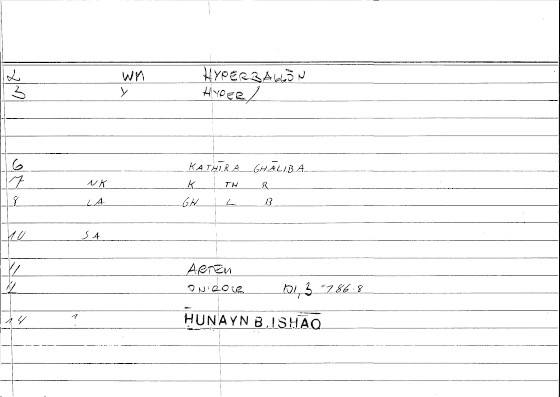 2 WM HYPERBALLŌN
3 Y HYPER/
6 KATHĪRA GHĀLIBA
7 NK K TH R
8 LA GH L B
10 SA
11 ARTEM
11 ONIROCR 101,3 786.8
14 1 ḤUNAYN B. ISḤĀQ